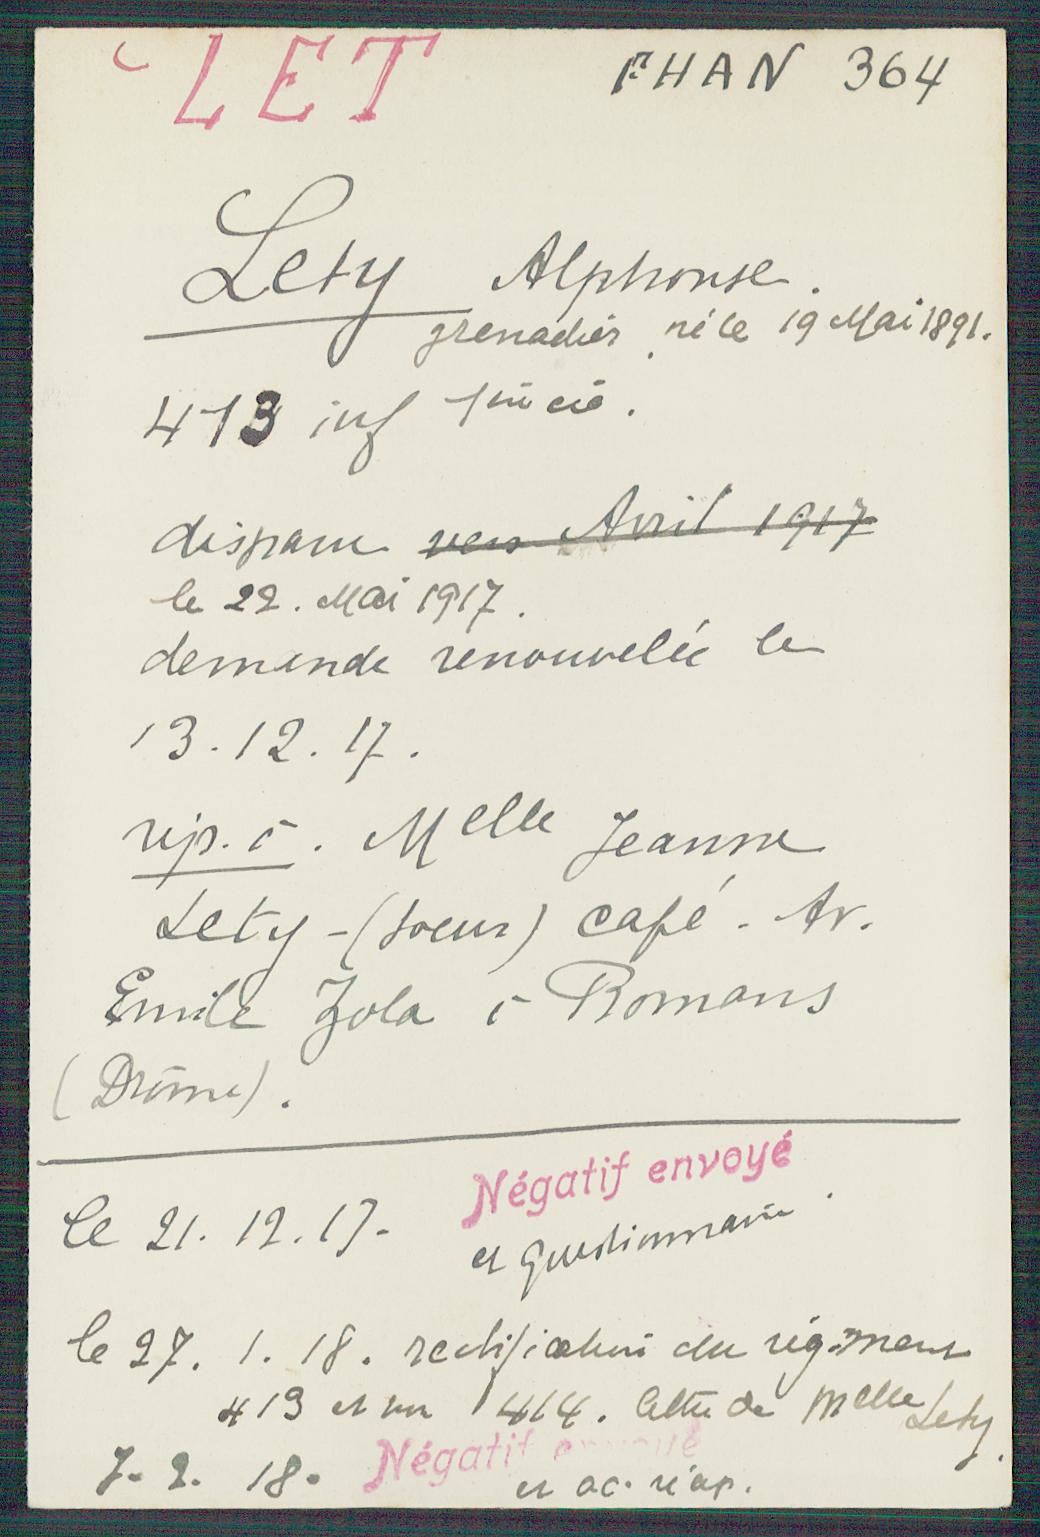 LET FHAN 364
Lety Alphonse.
grenadier, né le 19 Mai 1891.
413 inf 1ère cie.
disparu vers Avril 1917
le 22. Mai 1917.
demande renouvelée le
13.12.17.
rép. à. Melle Jeanne
Lety - (soeur) café - Av.
Emile Zola à Romans
(Drôme).
Négatif envoyé
le 21.12.17-
et questionnaire.
le 27. 1. 18. rectification du régiment
413 et non 414. lettre de Melle Lety.
7-2. 18. Négatif envoyé
et ac.